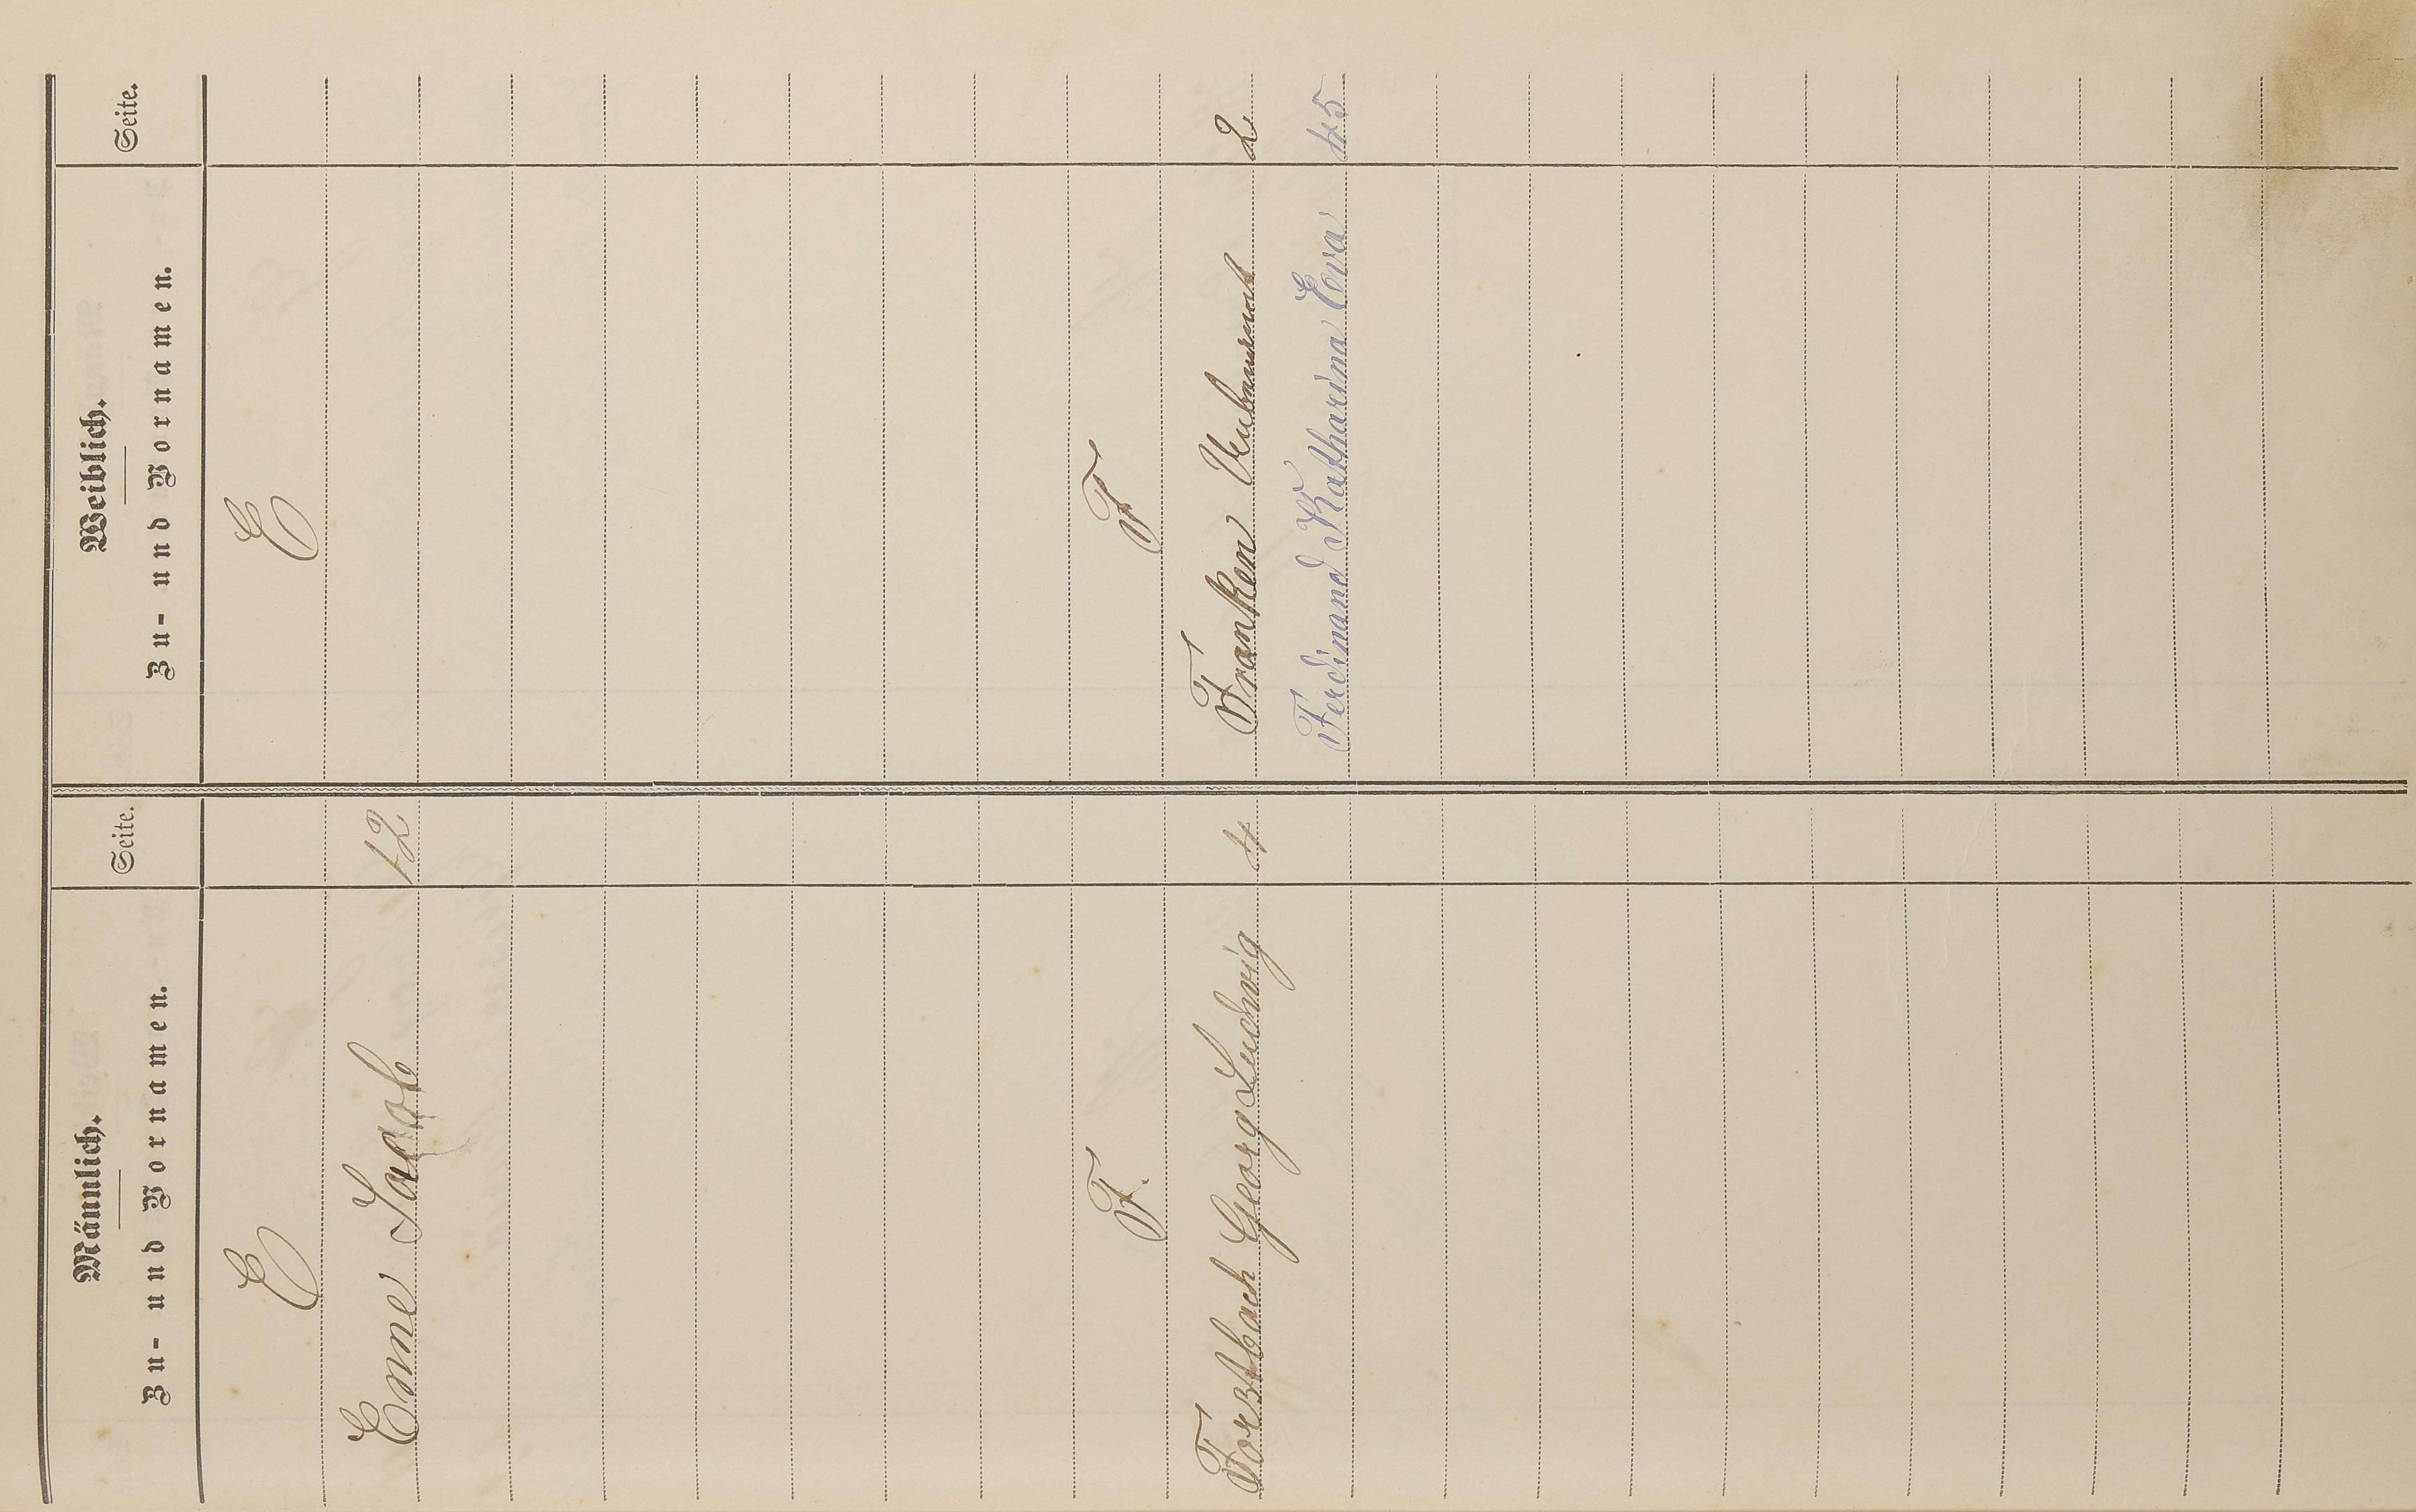 Männlich. Seite. Weiblich. Seite.
Zu- und Vornamen. Zu- und Vornamen.
E E
Eme Jacob 12
F. F
Forstbach Georg Ludwig 4 Franken 2
Ferdinand Katharina Eva 45